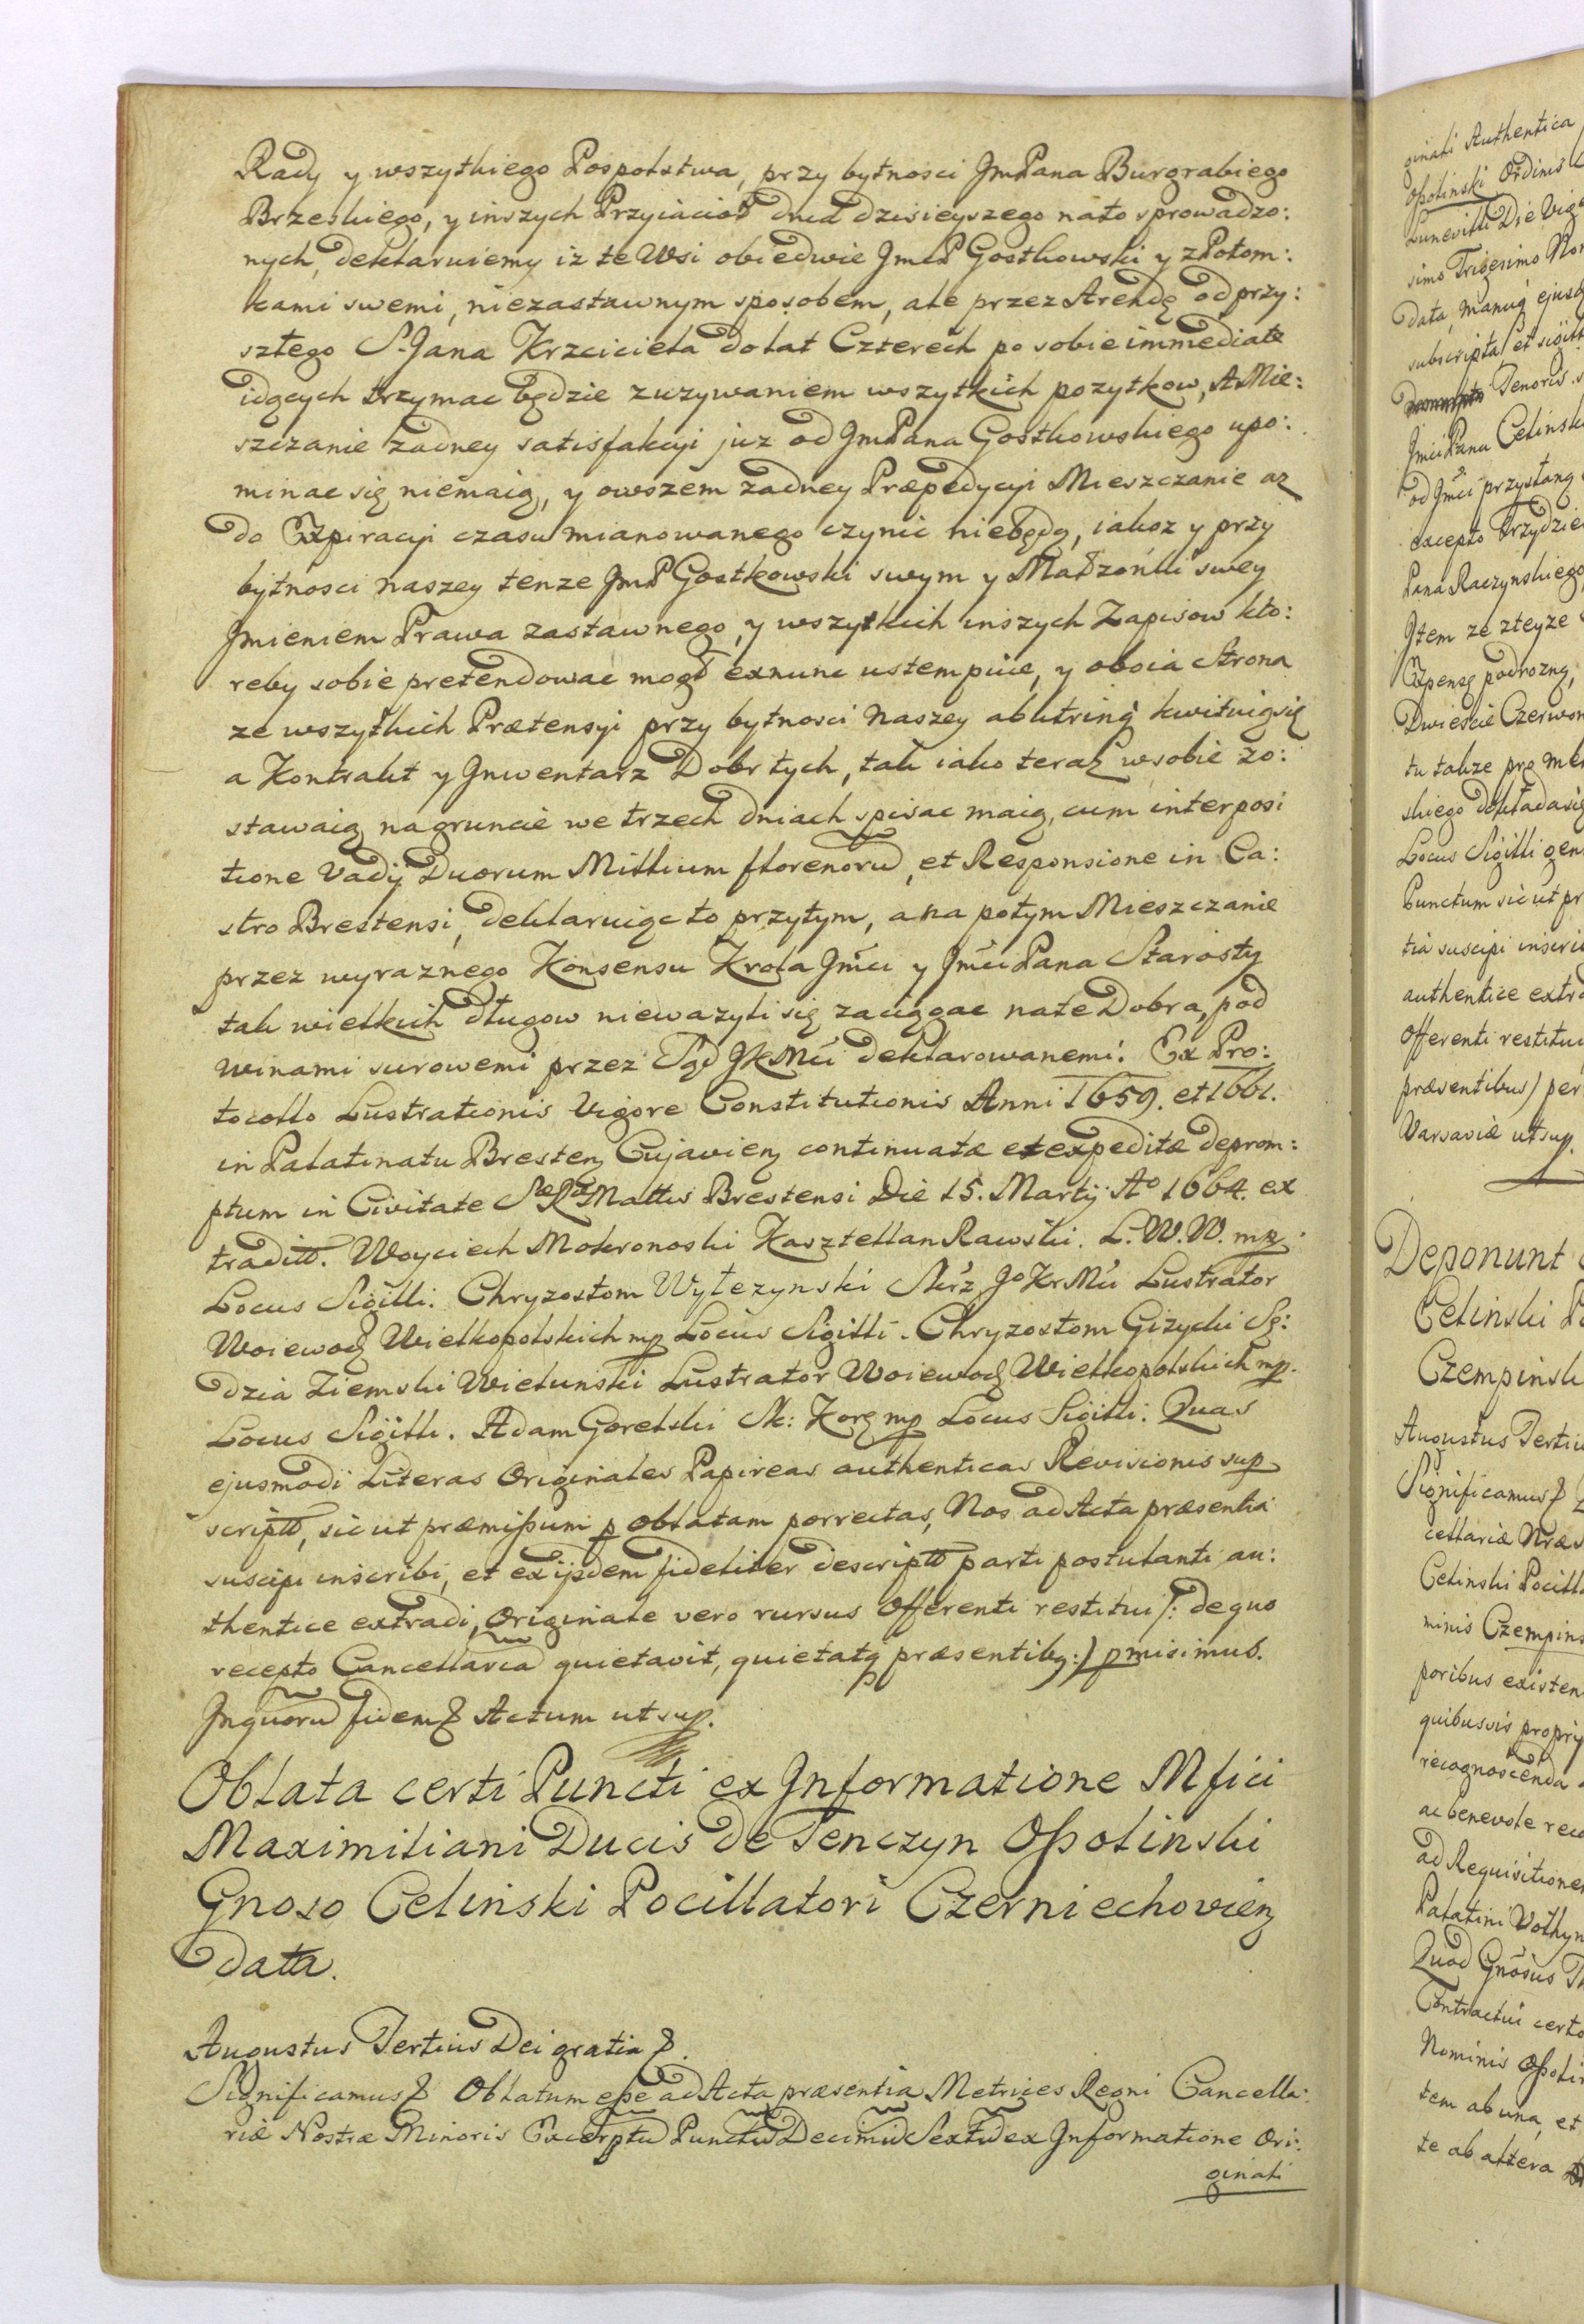 Rady y wszytkiego Pospolstwa, przy bytnosci JmPana Burgrabiego
Brzeskiego, y inszych Przyiacioł dnia dzisieyszego nato sprowadzo:
nych, deklaruiemy iż te Wsi obiedwie JmcP Gostkowski y z Potom:
kami swemi, niezastawnym sposobem, ale przez Arendę od przy:
szłego S. Jana Krzciciela do lat Czterech po sobie immediate
idących trzymac będzie zuzywaniem wszytkich pozytkow, A Mie:
szczanie żadney satisfakcyi juz od JmPana Gostkowskiego upo:
minac się niemaią, y owszem żadney Præpedycyi Mieszczanie az
do Expiracyi czasu mianowanego czynic niebędą, iakoz y przy
bytnosci naszey tenze JmP Gostkowski swym y Małżonki swey
Jmieniem Prawa zastawnego, y wszytkich inszych Zapisow kto:
reby sobie pretendowac mogł exnunc ustempuie, y oboia Strona
ze wszytkich Prætensyi przy bytnosci naszey abutrinq kwituią się
a Kontrakt y Jnwentarz Dobr tych, tak iako teraz wsobie zo:
stawaią na gruncie we trzech dniach spisac maią, cum interposi
tione Vadij Duorum Millium florenorũ, et Responsione in Ca:
stro Brestensi, deklaruiąc to przytym, a na potym Mieszczanie
przez wyraznego Konsensu Krola Jmci y Jmci Pana Starosty
tak wielkich długow niewazyli się zaciągac na te Dobra, pod
winami surowemi przez Sąd JKMci deklarowanemi. Ex Pro:
tocollo Lustrationis Vigore Constitutionis Anni 1659. et 1661.
in Palatinatu Bresten Cujavien continuatæ et expeditæ deprom:
ptum in Civitate SæRæMattis Brestensi Die 15. Martij Aº 1664. ex
traditt. Woyciech Mokronoski Kasztellan Rawski. L. W. W. mp
Locus Sigilli. Chryzostom Wyłezynski Skrz JoKrMci Lustrator
Woiewodz Wielkopolskich mp Locus Sigilli. Chryzostom Giżycki Sę:
dzia Ziemski Wieluński Lustrator Woiewodz Wielkopolskich mp.
Locus Sigilli. Adam Gorelski Sk: Kor mp Locus Sigilli. Quas
ejusmodi Literas Originales Papireas authenticas Revisionis sup
scriptt, sic ut præmissum p oblatam porrectas, Nos ad Acta præsentia
suscipi inscribi, et ex ijsdem fideliter descriptt parti postulanti au:
thentice extradi, Originale vero rursus Offerenti restitui /: de quo
recepto Cancellaria quietavit, quietatq præsentibq :/ pmisimus.
Jnquorũ fidem & Actum ut sup.
Oblata certi Puncti ex Jnformatione Mfici
Maximiliani Ducis de Tenczyn Ossolinski
Gnoso Celinski Pocillatori Czerniechovien
data.
Augustus Tertius Dei gratia &.
Significamus & Oblatum esse ad Acta præsentia Metrices Regni Cancella:
riæ Nostræ Minoris Excerptũ Punctũ Decimũ Sextũ ex Jnformatione Ori:
ginali
ginali Authentica
Ossolinski Ordinis
Lunevilli Die Vig
simo Trigesimo Non
data, manuq ejusd
subscripta, et sigill
Tenoris
Jmci Pana Celinsk
od Jmci przysłaną
excepto trzydzie
Pana Raczynskiego
Jtem ze zteyze
Expensę podrozną,
Dwieście Czerwon
tu takze pro me
skiego dokłada się
Locus Sigilli gen
Punctum sic ut pr
tia suscipi inscri
authentice extra
Offerenti restitui
præsentibus) per
Varsaviæ ut sup.
Deponunt
Celinski P
Czempinsk
Augustus Tertiu
Significamus &
cellariæ Nræ
Celinski Pocill
minis Czempins
poribus existen
quibusvis propry
recognoscenda
ac benevole reco
ad Requisitione
Palatini Volhyn
Quod Gnosus
Contractui certo
Nominis Ossoli
tem ab una, et
te ab altera